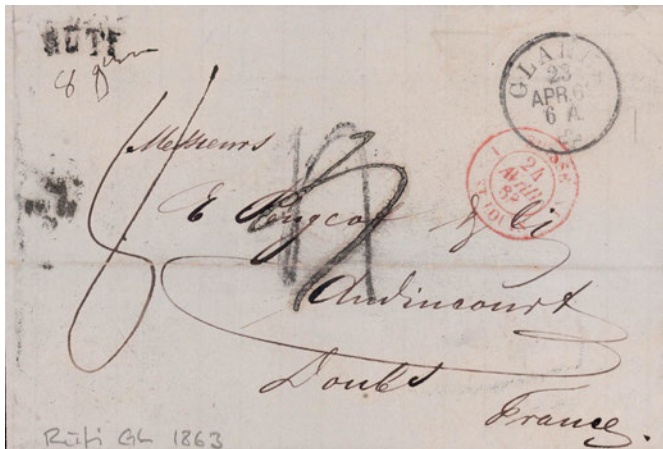 RÜTI
8
GLARUS
23
APR. 6
6 A.
SUISSE
24
AVRIL
ST LOUIS
Messieurs
E Peugeot & Ci
Audincourt
Doubs
France.
Rüti GL 1863